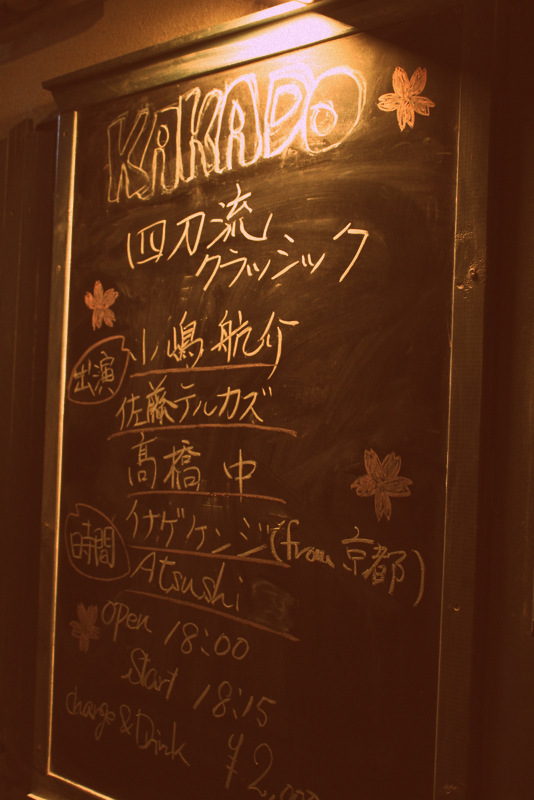 KAKADO
四刀流
クラッシック
出演
小嶋航介
佐藤テルカズ
髙橋 中
イナゲケンジ(from 京都)
時間
Atsushi
open 18:00
Start 18:15
charge & Drink ¥2,000